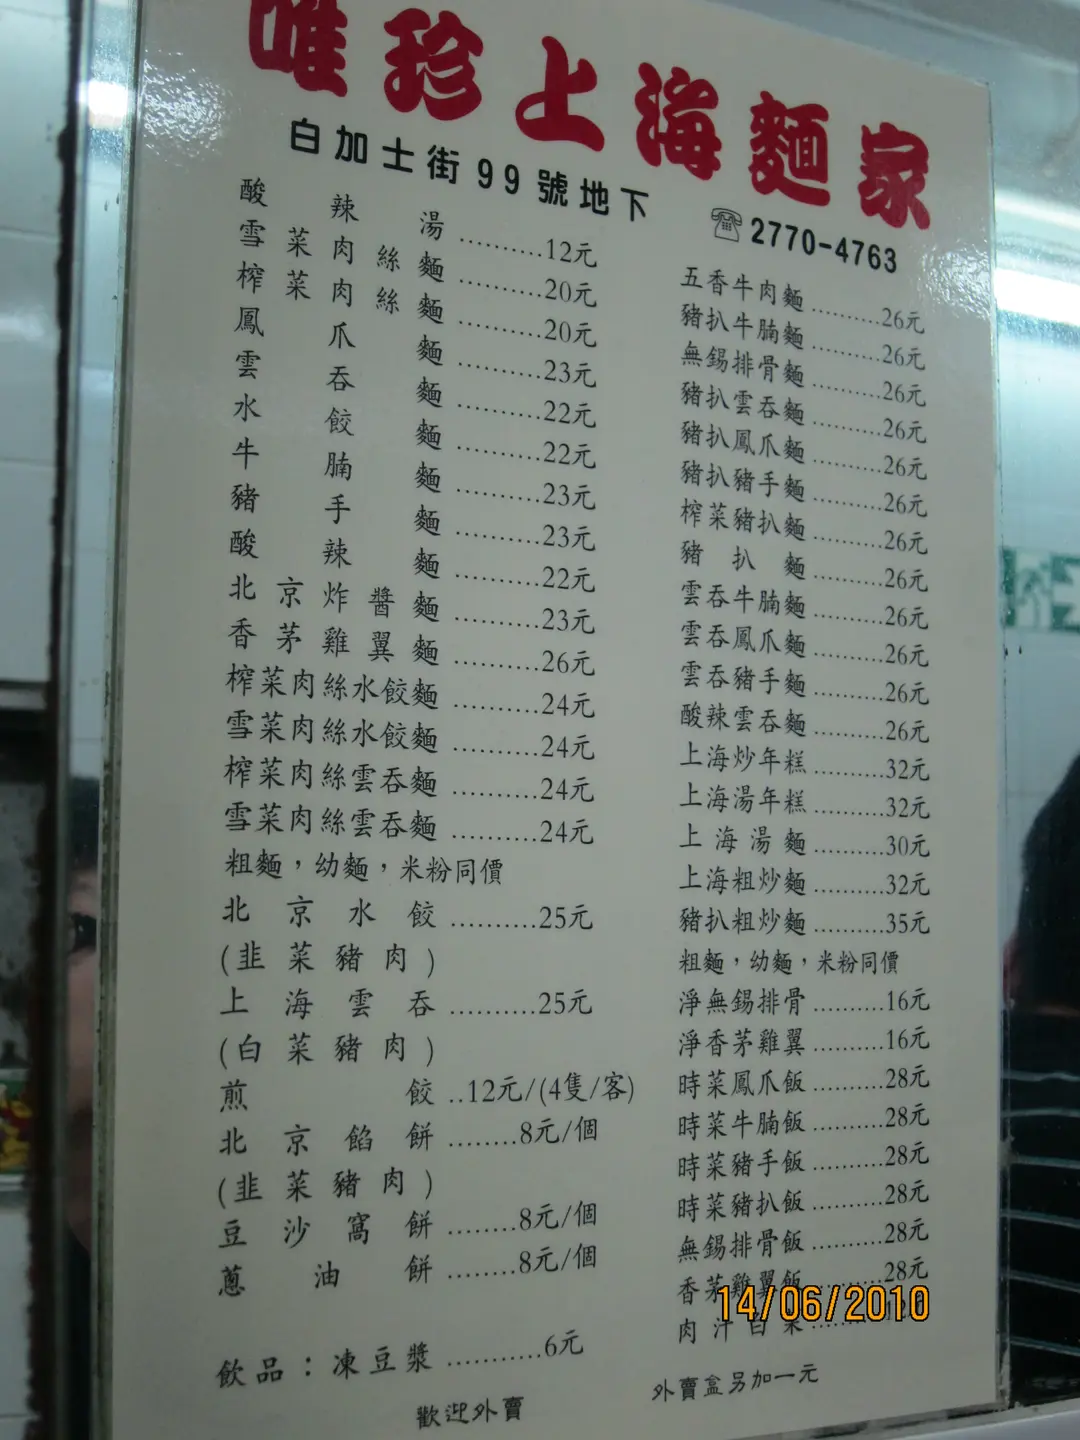 唯珍上海麵家
白加士街99號地下
☎2770-4763
酸辣湯..........12元
雪菜肉絲麵..........20元
榨菜肉絲麵..........20元
鳳爪麵..........23元
雲吞麵..........22元
水餃麵..........22元
牛腩麵..........23元
豬手麵..........23元
酸辣麵..........22元
北京炸醬麵..........23元
香茅雞翼麵..........26元
榨菜肉絲水餃麵..........24元
雪菜肉絲水餃麵..........24元
榨菜肉絲雲吞麵..........24元
雪菜肉絲雲吞麵..........24元
粗麵，幼麵，米粉同價
北京水餃..........25元
(韭菜豬肉)
上海雲吞..........25元
(白菜豬肉)
煎餃..12元/(4隻/客)
北京餡餅........8元/個
(韭菜豬肉)
豆沙窩餅........8元/個
蔥油餅........8元/個
飲品：凍豆漿...........6元
五香牛肉麵.........26元
豬扒牛腩麵.........26元
無錫排骨麵.........26元
豬扒雲吞麵.........26元
豬扒鳳爪麵.........26元
豬扒豬手麵.........26元
榨菜豬扒麵.........26元
豬扒麵.........26元
雲吞牛腩麵.........26元
雲吞鳳爪麵.........26元
雲吞豬手麵.........26元
酸辣雲吞麵.........26元
上海炒年糕.........32元
上海湯年糕.........32元
上海湯麵.........30元
上海粗炒麵.........32元
豬扒粗炒麵.........35元
粗麵，幼麵，米粉同價
淨無錫排骨.........16元
淨香茅雞翼.........16元
時菜鳳爪飯.........28元
時菜牛腩飯.........28元
時菜豬手飯.........28元
時菜豬扒飯.........28元
無錫排骨飯.........28元
香茅雞翼飯.........28元
肉汁白菜.........
外賣盒另加一元
歡迎外賣
14/06/2010